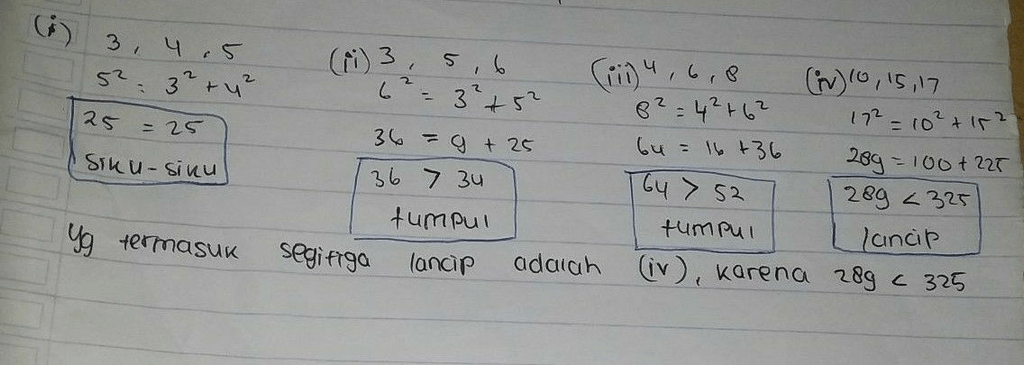 (i) 3, 4, 5
5² = 3² + 4²
25 = 25
siku-siku
(ii) 3, 5, 6
6² = 3² + 5²
36 = 9 + 25
36 > 34
tumpul
(iii) 4, 6, 8
8² = 4² + 6²
64 = 16 + 36
64 > 52
tumpul
(iv) 10, 15, 17
17² = 10² + 15²
289 = 100 + 225
289 < 325
lancip
Yg termasuk segitiga lancip adalah (iv), karena 289 < 325